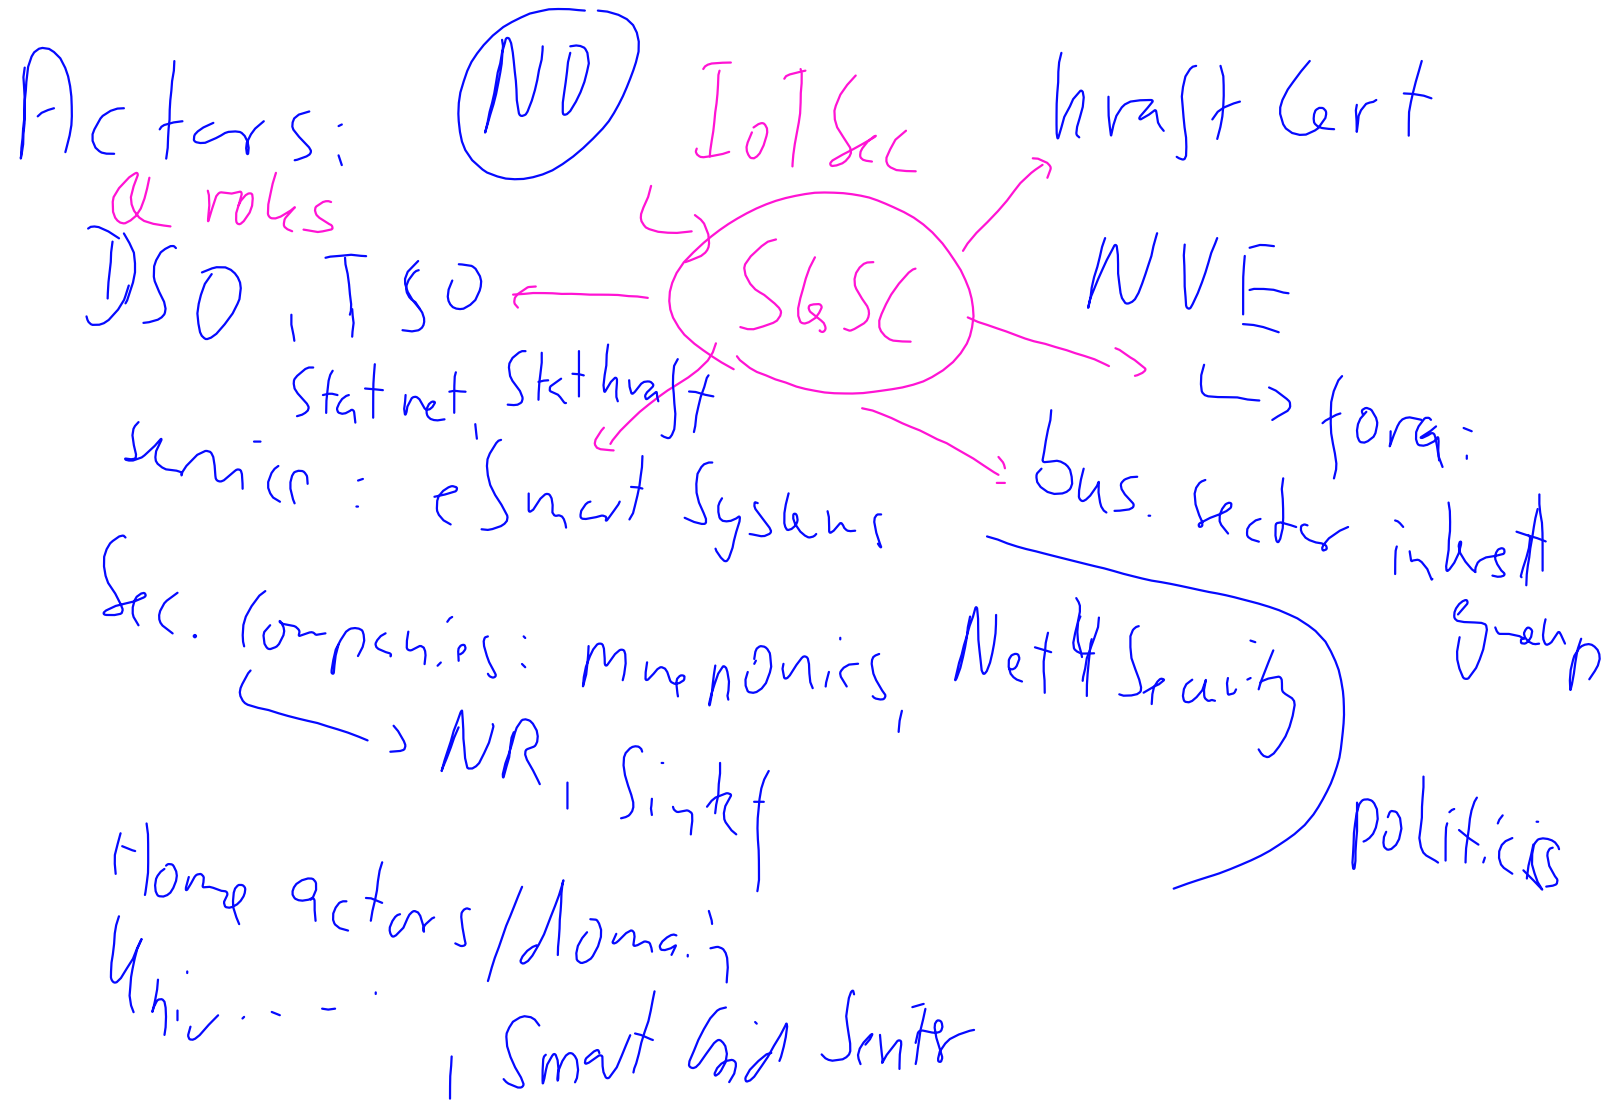 Actors: NO IoTSec KraftCert
& roles
DSO, TSO SGSC NVE
Statnet, Statkraft
→ fora:
service: eSmart Systems bus. sector interest
group
Sec. Companies: mnemonics, Net4Security
→ NR, Sintef
politics
Home actors/domain
Univ....
, Smart Grid Senter